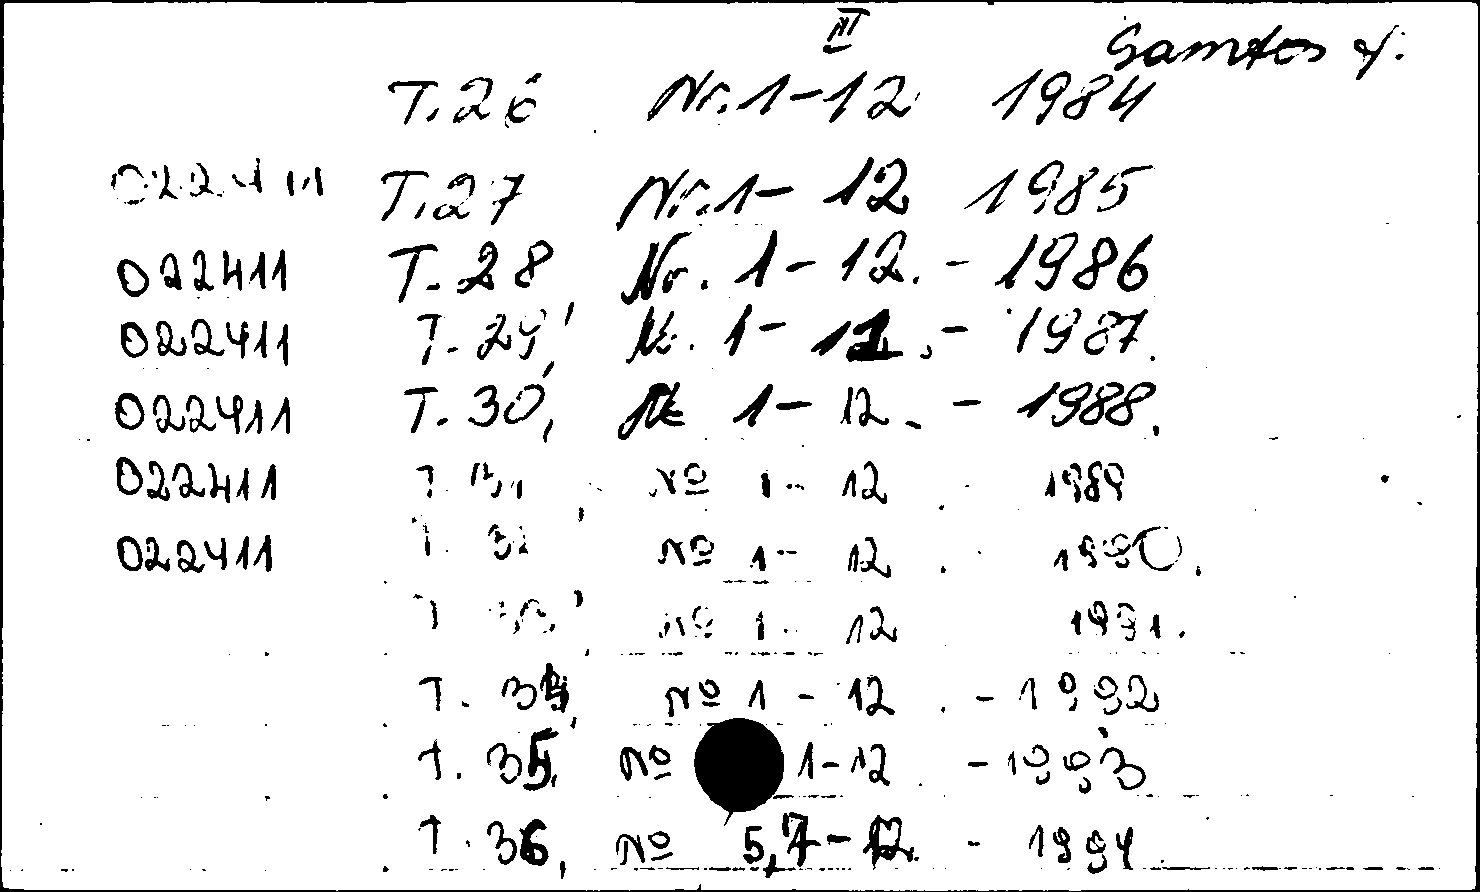 III
T. 26 Nr. 1-12 1984
022411 T. 27 Nr. 1- 12 1985
022411 T. 28 Nr. 1-12. - 1986
022411 T. 29, Nr. 1- 12. - 1987.
022411 T. 30, Nr 1- 12. - 1988.
022411 T. 31 № 1- 12 1989
022411 T. 32, № 1- 12 . 1990.
T. 33, № 1- 12 1991.
T. 34, № 1 - 12 . - 1992
T. 35, № 1-12 - 1993
T. 36, № 5,7-12. - 1994